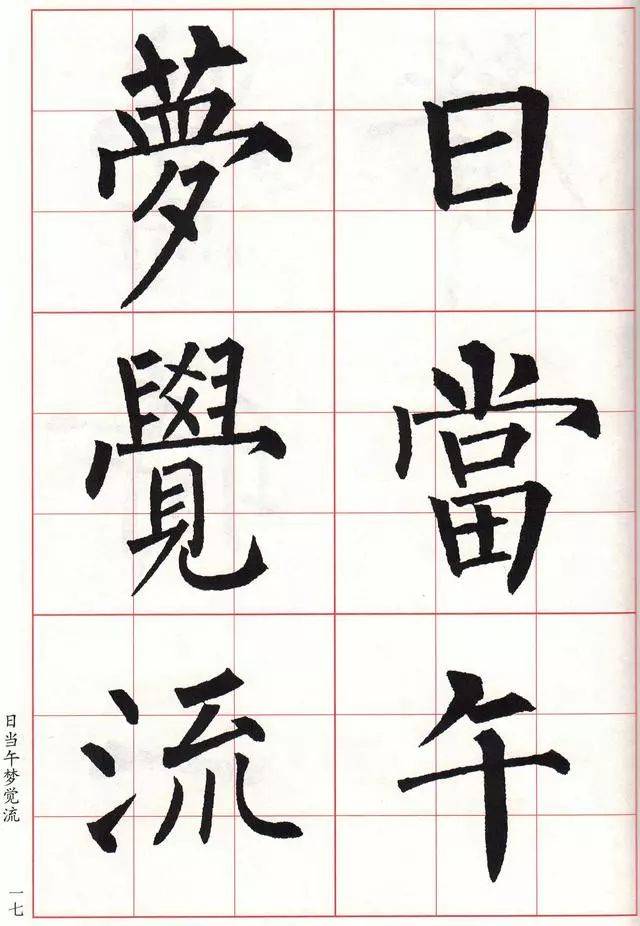 日當午
夢覺流
日当午梦觉流
一七